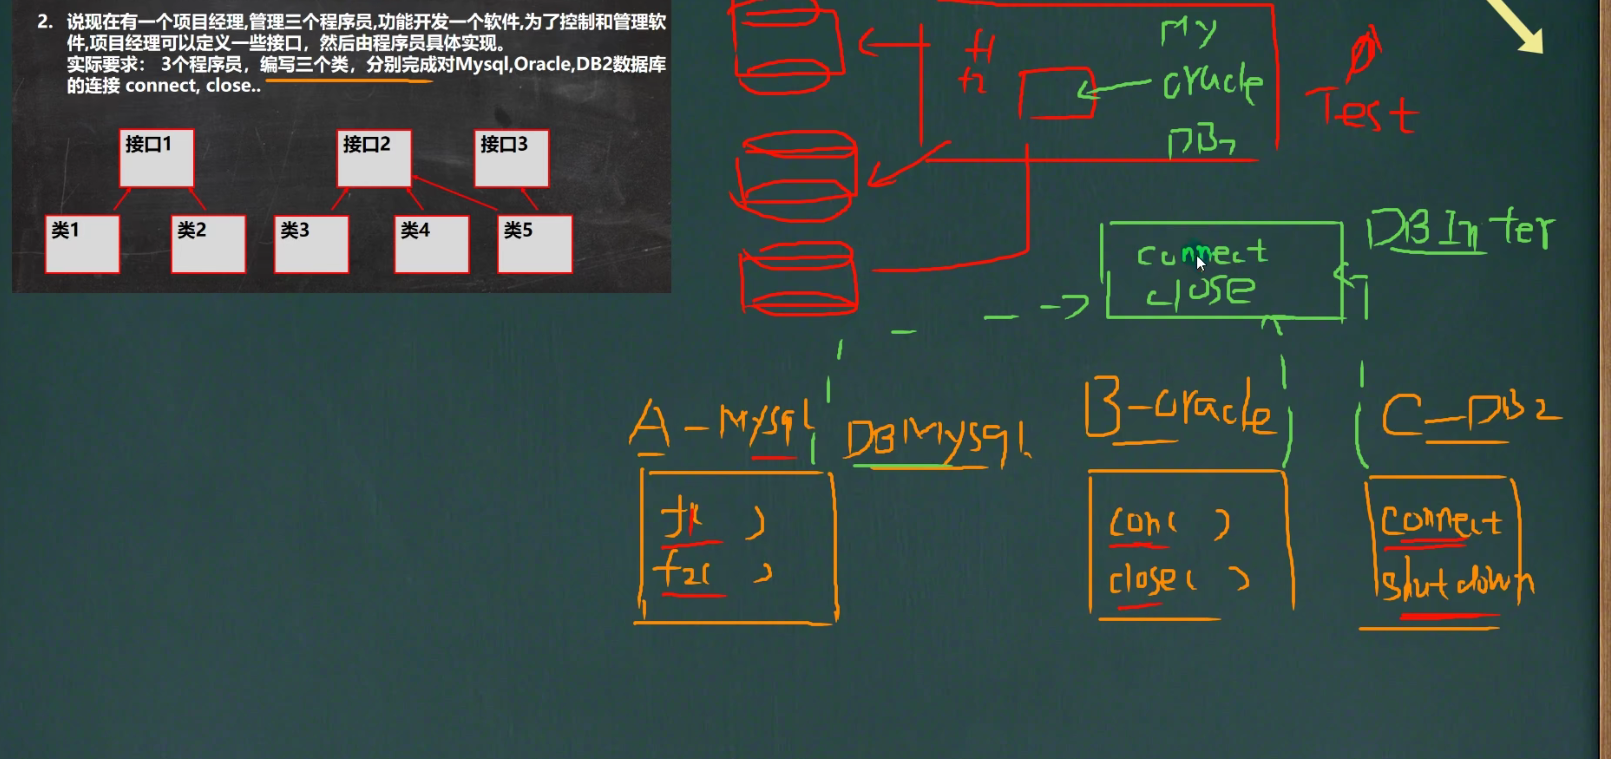 2. 说现在有一个项目经理,管理三个程序员,功能开发一个软件,为了控制和管理软
件,项目经理可以定义一些接口，然后由程序员具体实现。
实际要求： 3个程序员，编写三个类，分别完成对Mysql,Oracle,DB2数据库
的连接 connect, close..
接口1
接口2
接口3
类1
类2
类3
类4
类5
f1
f2
My
oracle
DB2
Test
DBInter
connect
close
A-Mysql
DBMysql
f1( )
f2( )
B-oracle
con( )
close( )
C-DB2
connect
shutdown